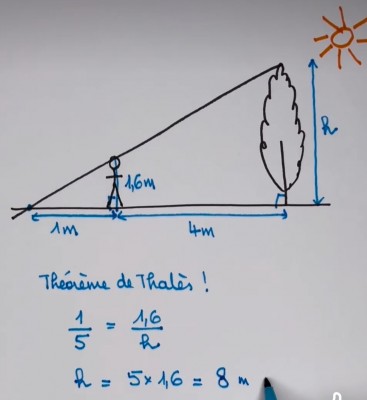 h
1,6m
1m
4m
Théorème de Thalès !
1/5 = 1,6/h
h = 5 × 1,6 = 8 m